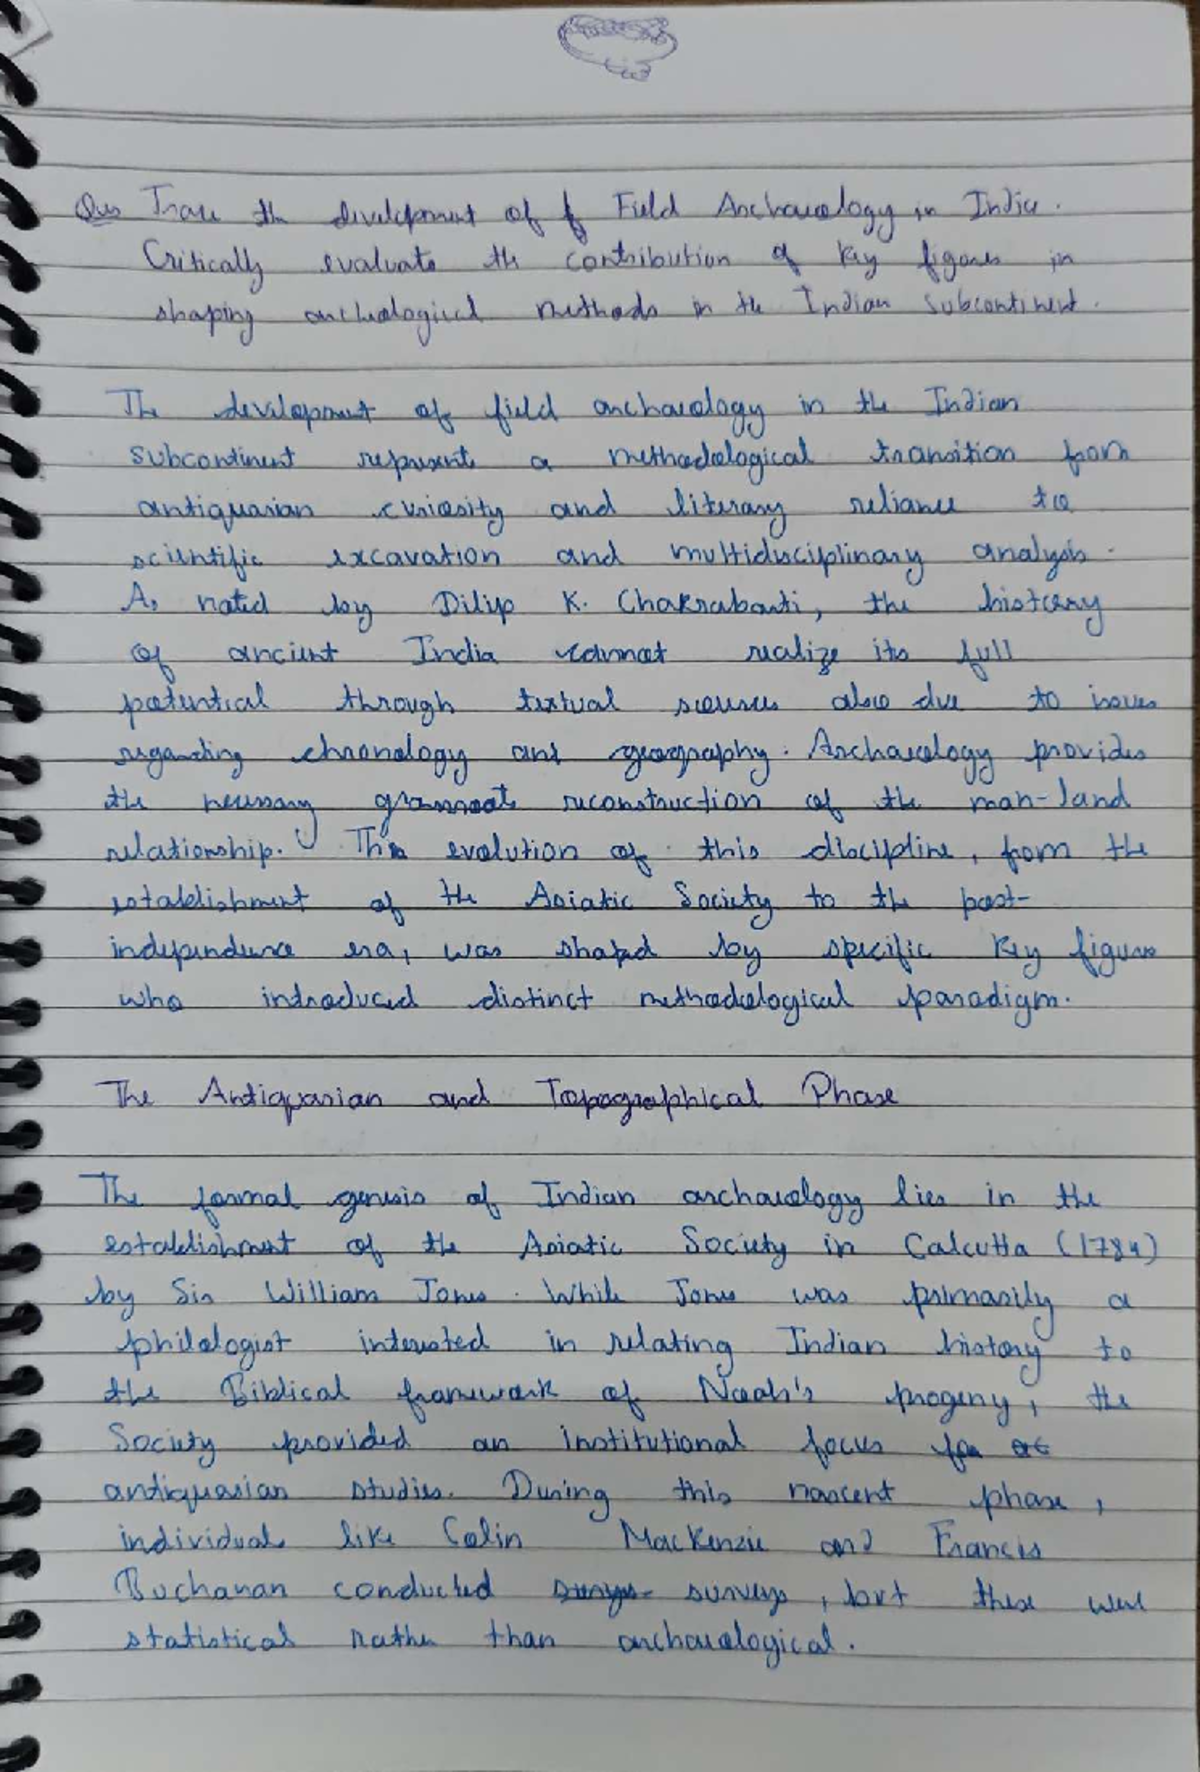 Ques Trace the development of Field Archaeology in India.
Critically evaluate the contribution of key figures in
shaping archeological methods in the Indian Subcontinent.
The development of field archaeology in the Indian
subcontinent represents a methodological transition from
antiquarian curiosity and literary reliance to
scientific excavation and multidisciplinary analysis.
As noted by Dilip K. Chakrabarti, the history
of ancient India cannot realize its full
potential through textual sources also due to issues
regarding chronology and geography. Archaeology provides
the necessary reconstruction of the man-land
relationship. This evolution of this discipline, from the
establishment of the Asiatic Society to the post-
independence era, was shaped by specific key figures
who introduced distinct methodological paradigm.
The Antiquarian and Topographical Phase
The formal genesis of Indian archaeology lies in the
establishment of the Asiatic Society in Calcutta (1784)
by Sir William Jones. While Jones was primarily a
philologist interested in relating Indian history to
the Biblical framework of Noah's progeny, the
Society provided an institutional focus for
antiquarian studies. During this nascent phase,
individuals like Colin MacKenzie and Francis
Buchanan conducted surveys, but these were
statistical rather than archaeological.